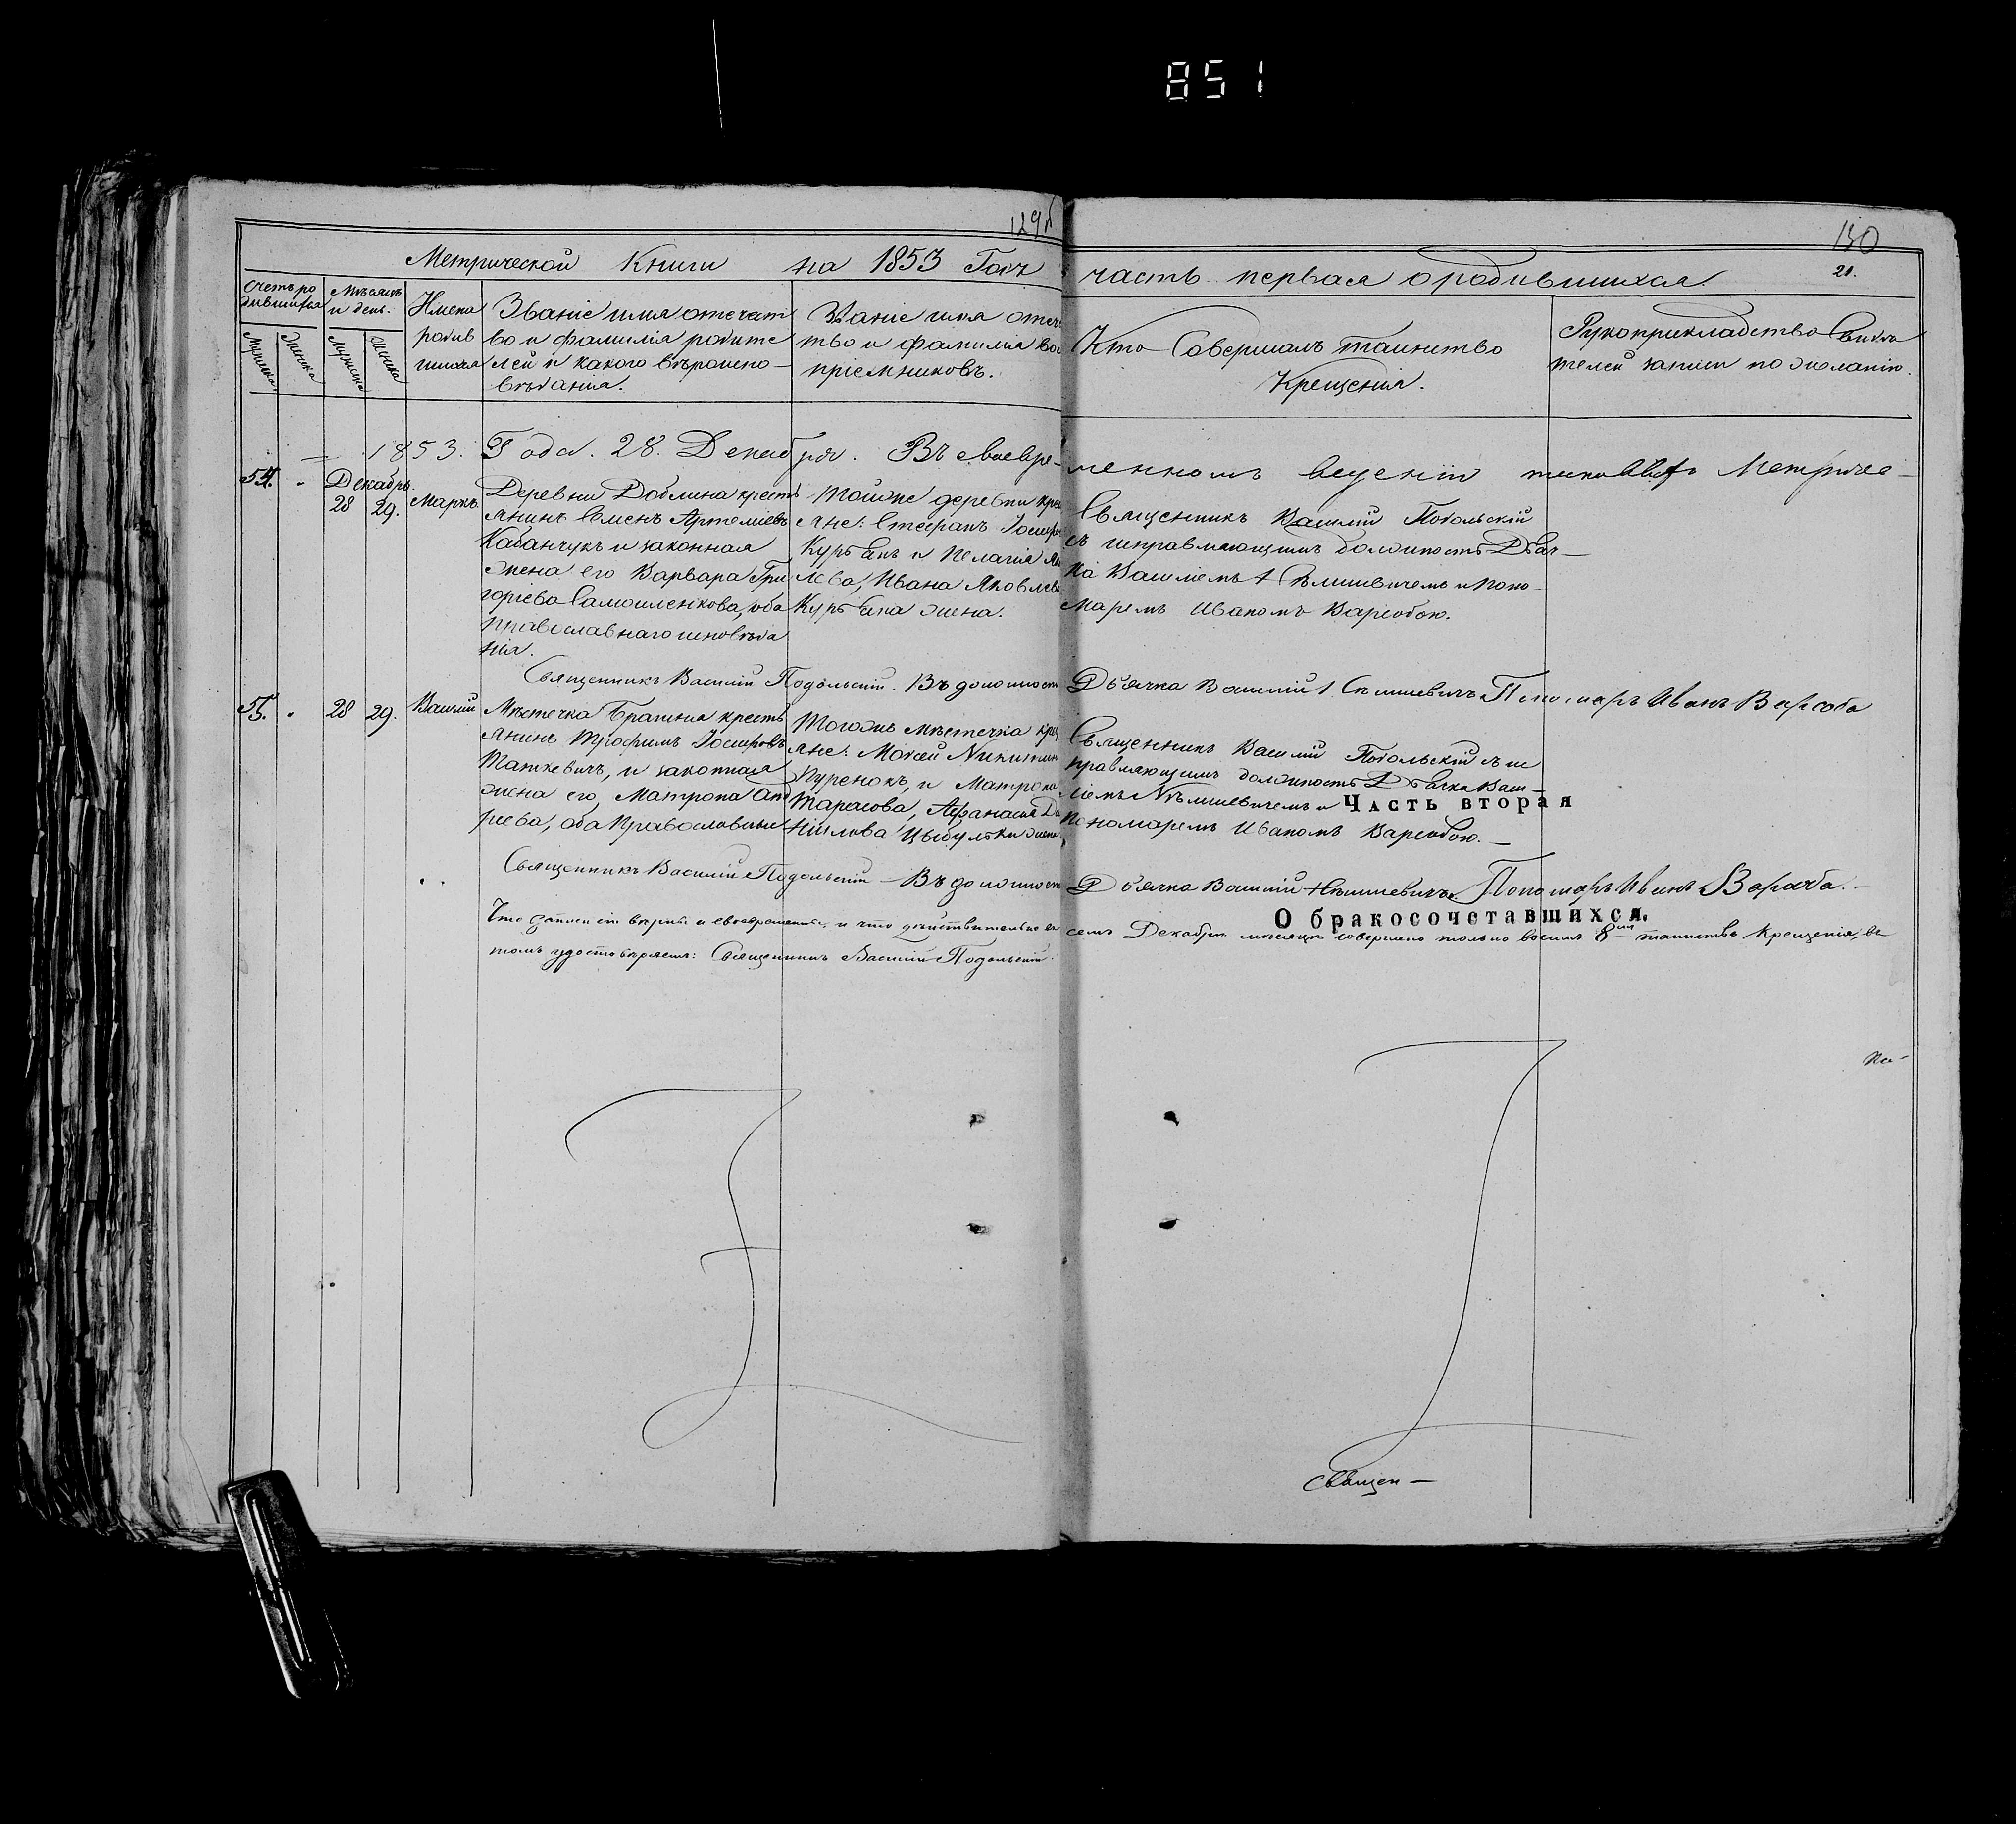 851
129
130
Метрической Книги на 1853 Годъ часть первая о родившихся.
21.
Счетъ ро
дившихся
Мѣсяцъ
и день.
Имена
родив
шихся
Званіе имя отечест
во и фамилія родите
лей и какого вѣроиспо-
вѣданія.
Званіе имя отече
тво и фамилія во
пріемниковъ.
Кто Совершалъ таинство
Крещенія.
Рукоприкладство Свидѣ
телей записи по желанію.
1853. Года. 28. Декабря. Въ своевре-
менномъ веденіи таковыхъ Метриче-
54.
Декабрь.
28 29.
Маркъ.
Деревни Доблина кресть
янинъ Семенъ Артеміевъ
Кабанчукъ и законная
жена его Варвара Гри
горьева Самошленкова, оба
православнаго исповѣда
нія.
Тойже деревни крес
яне: Стефанъ Іосифо
и Пелагія
Ивана Яковлева
жена.
Священникъ Василій Подольскій
съ исправляющимъ должность Дьяч-
ка Василіемъ и поно-
маремъ Иваномъ Варсобою.
Священникъ Василій Подольскій. Въ должност Дьячка Василій Пономарь Иванъ Варсоба
55.
28 29.
Василій
Мѣстечка Брагина кресть
янинъ Трофимъ Іосифовъ
и законная
жена его, Матрона Анд
реева, оба Православные
Тогожъ мѣстечка крес
яне: Моисей Никитин
и Матрона
Тарасова, Афанасія Да
нилова Цыбульки жена
Священникъ Василій Подольскій съ ис
правляющимъ должность Дьячка Васи-
ліемъ и
пономаремъ Иваномъ Варсобою.
Часть вторая
Священникъ Василій Подольскій - Въ должност Дьячка Василій Пономарь Иванъ Варсоба.
О бракосочетавшихся.
Что записи сіи вѣрны и своевременны, и что дѣйствительно въ семъ Декабрѣ мѣсяцѣ совершено только восемь 8 таинствъ Крещенія, въ
томъ удостовѣряемъ: Священникъ Василій Подольскій.
Священ-